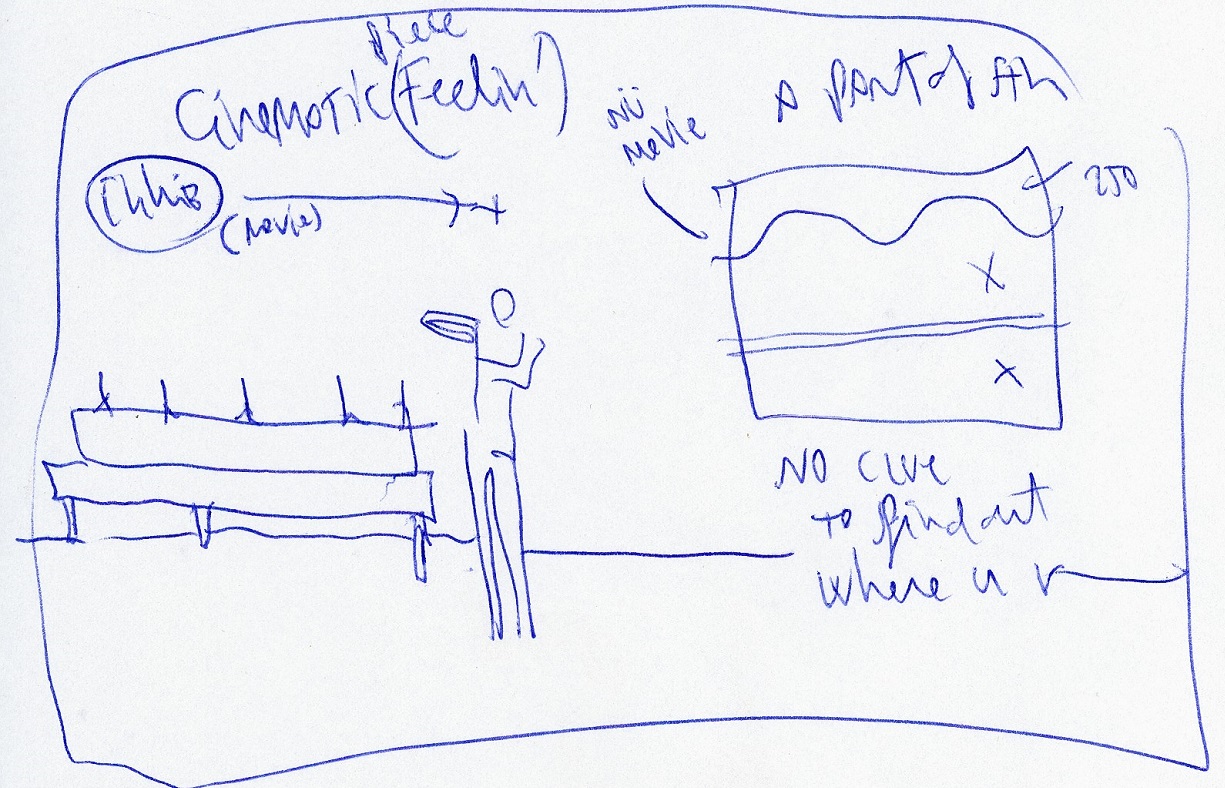 piece
Cinematic (Feelin')
A part of
nü
movie
(movie)
250
X
X
NO clue
to find out
where u r